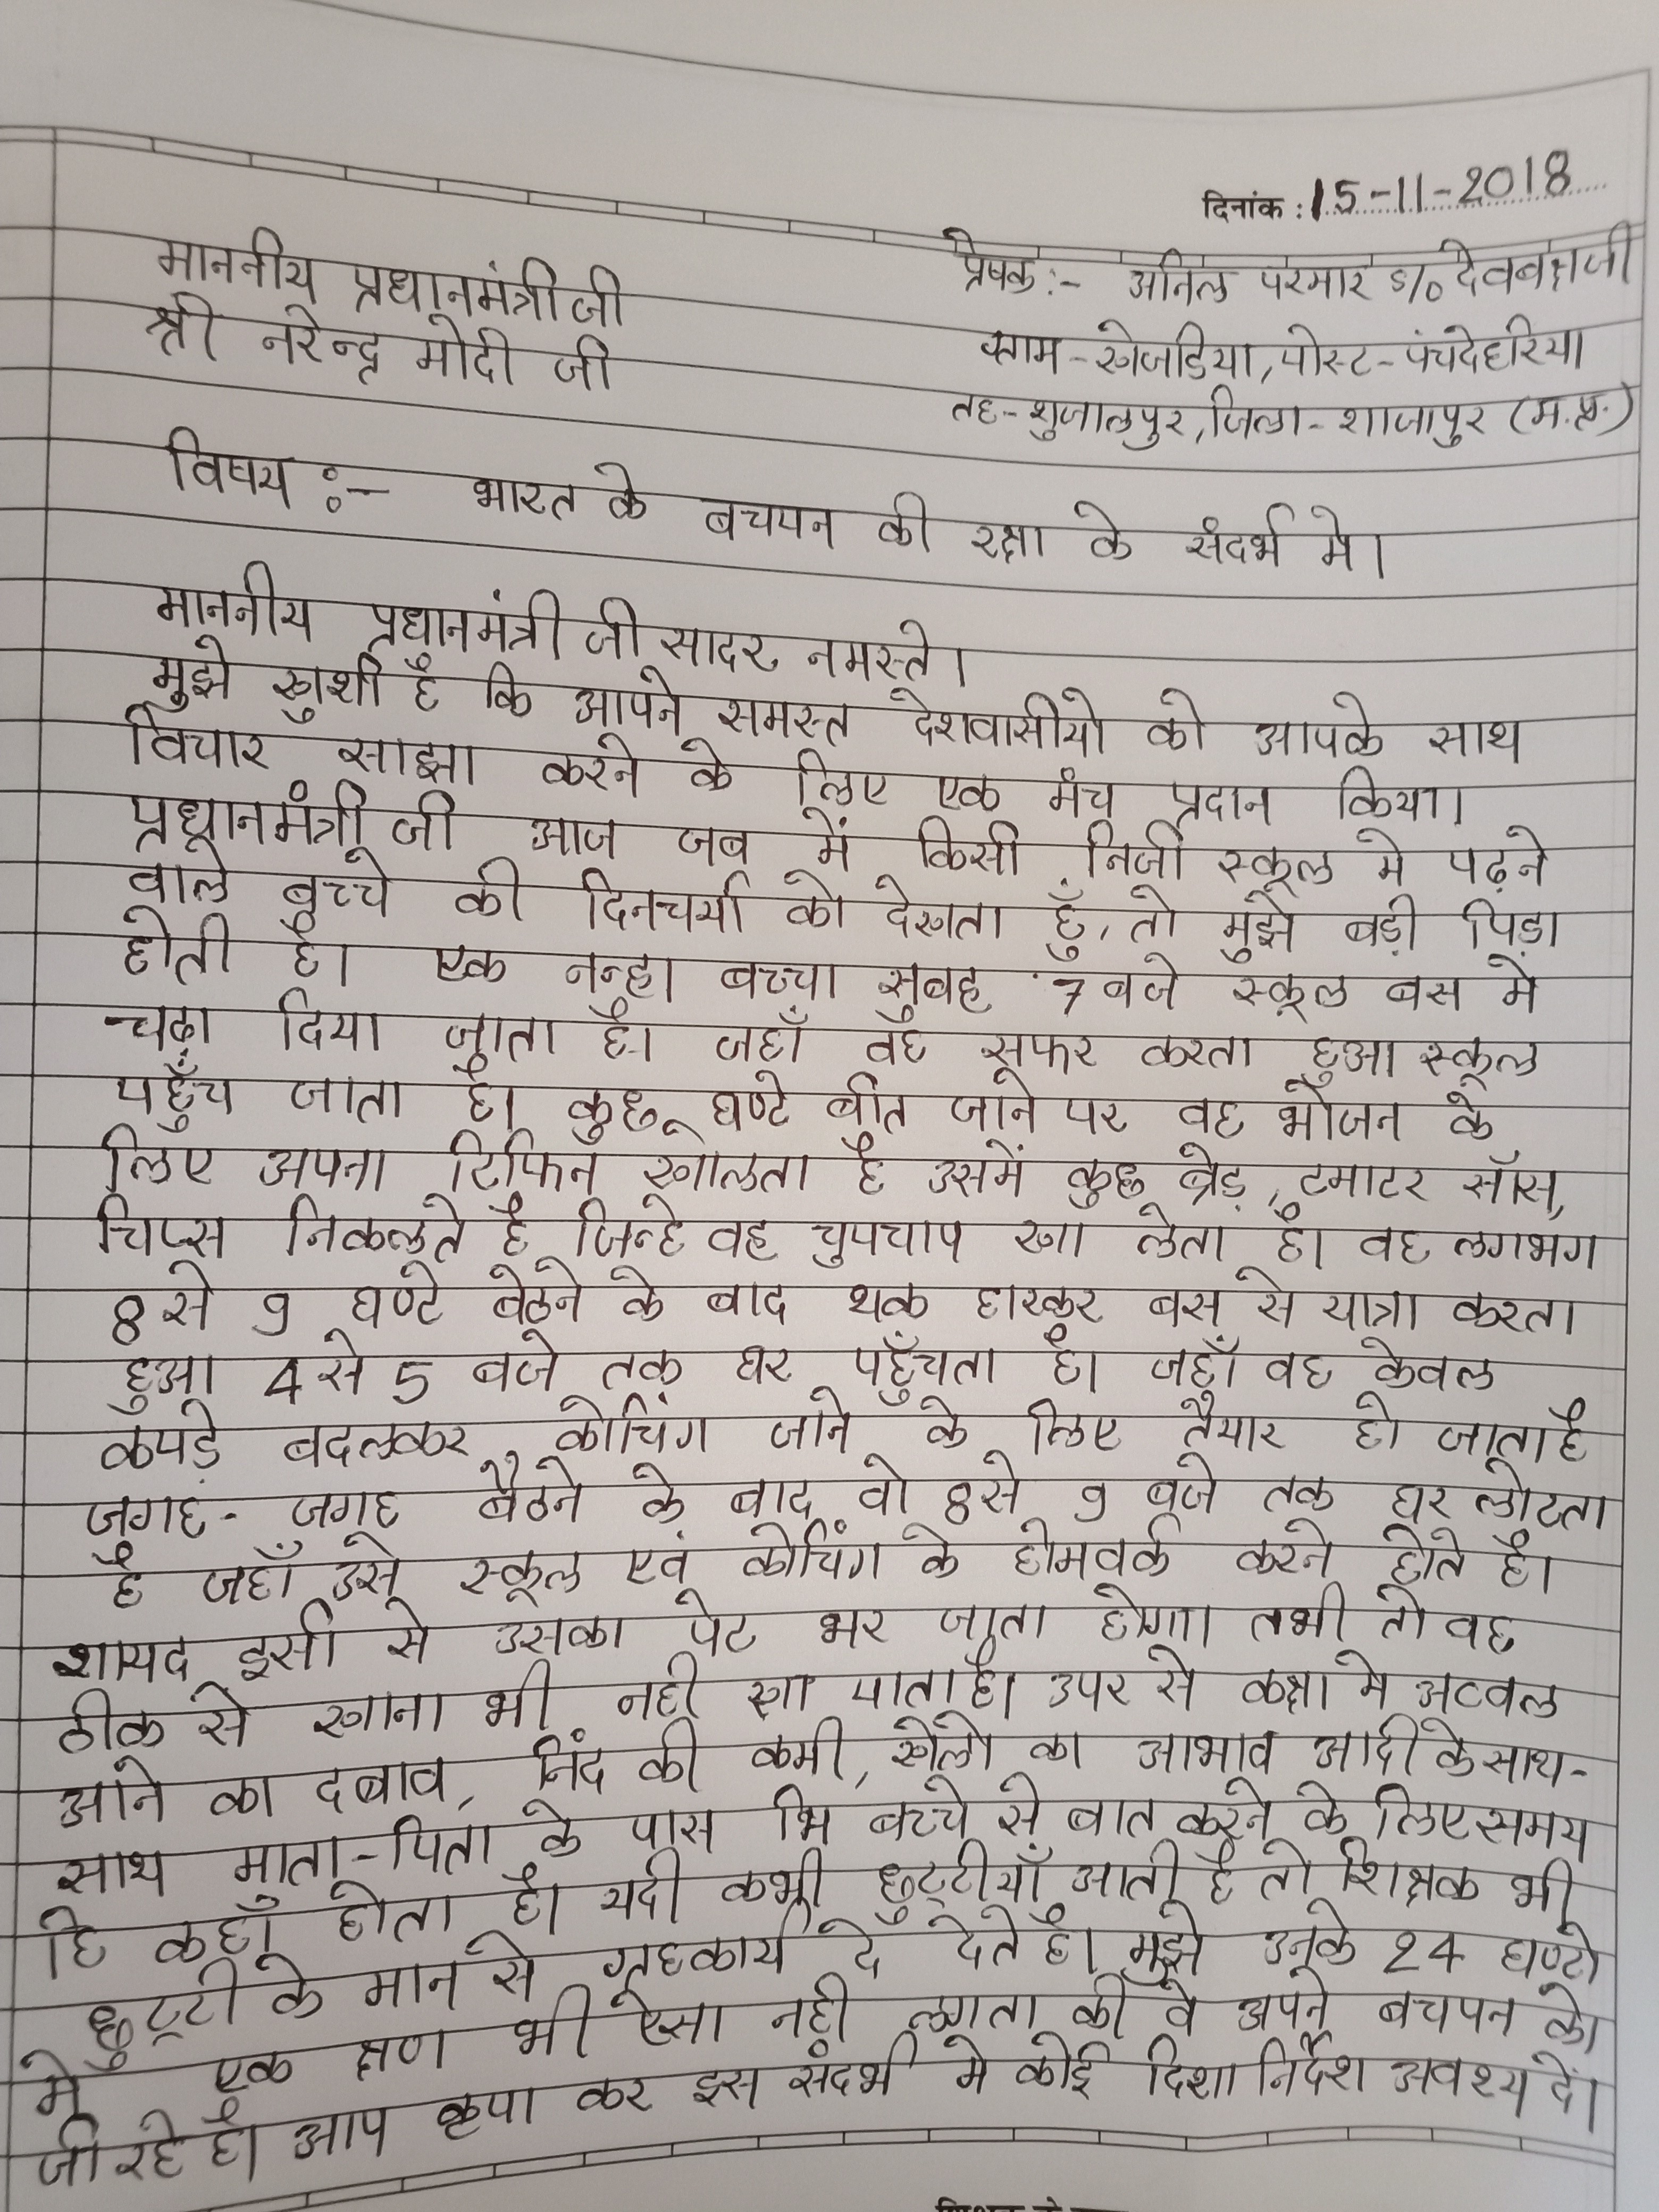 दिनांक : 15-11-2018
माननीय प्रधानमंत्री जी
श्री नरेन्द्र मोदी जी
प्रेषक :- अनिल परमार S/o देवबक्षजी
ग्राम - खेजडिया, पोस्ट - पंचदेहरिया
तह - शुजालपुर, जिला - शाजापुर (म.प्र.)
विषय :- भारत के बचपन की रक्षा के संदर्भ मे।
माननीय प्रधानमंत्री जी सादर नमस्ते।
मुझे खुशी है कि आपने समस्त देशवासीयो को आपके साथ
विचार साझा करने के लिए एक मंच प्रदान किया।
प्रधानमंत्री जी आज जब में किसी निजी स्कूल मे पढ़ने
वाले बच्चे की दिनचर्या को देखता हुँ, तो मुझे बड़ी पिड़ा
होती है। एक नन्हा बच्चा सुबह 7 बजे स्कूल बस मे
चढ़ा दिया जाता है। जहाँ वह सफर करता हुआ स्कूल
पहुँच जाता है। कुछ घण्टे बीत जाने पर वह भोजन के
लिए अपना टिफिन खोलता है उसमें कुछ ब्रेड़, टमाटर सॉस,
चिप्स निकलते है जिन्हे वह चुपचाप खा लेता है। वह लगभग
8 से 9 घण्टे बेठने के बाद थक हारकर बस से यात्रा करता
हुआ 4 से 5 बजे तक घर पहुँचता है। जहाँ वह केवल
कपड़े बदलकर कोचिंग जाने के लिए तैयार हो जाता है
जगह - जगह बैठने के बाद वो 8 से 9 बजे तक घर लोटता
है जहाँ उसे स्कूल एवं कोचिंग के होमवर्क करने होते है।
शायद इसी से उसका पेट भर जाता होगा। तभी तो वह
ठीक से खाना भी नही खा पाता है। उपर से कक्षा मे अव्वल
आने का दबाव, निंद की कमी, खेलो का आभाव आदी के साथ-
साथ माता-पिता के पास भि बच्चे से बात करने के लिए समय
हि कहाँ होता है। यदी कभी छुट्टीयाँ आती है तो शिक्षक भी
छुट्टी के मान से गृहकार्य दे देते है। मुझे उनके 24 घण्टो
मे एक क्षण भी ऐसा नही लगता की वे अपने बचपन को
जी रहे है। आप कृपा कर इस संदर्भ मे कोई दिशा निर्देश अवश्य दें।